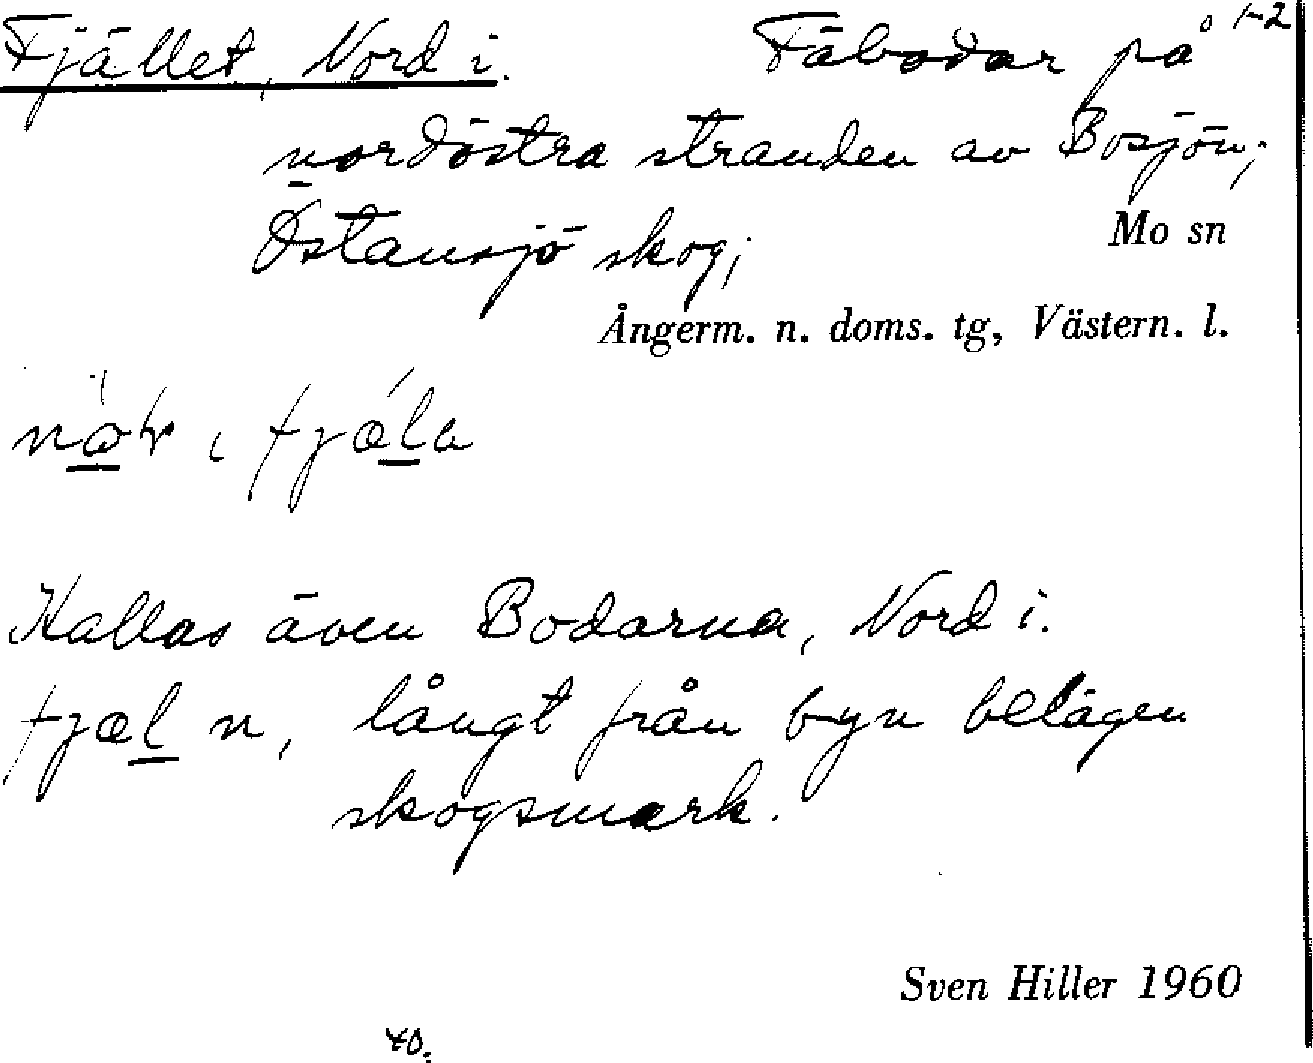 Fjället, Nord i. Fäbodar på 1-2
nordöstra stranden av Bosjön;
Östansjö skog; Mo sn
Ångerm. n. doms. tg, Västern. l.
i fjæla
Kallas även Bodarna, Nord i.
fjæl n, långt från byn belägen
skogsmark.
Sven Hiller 1960